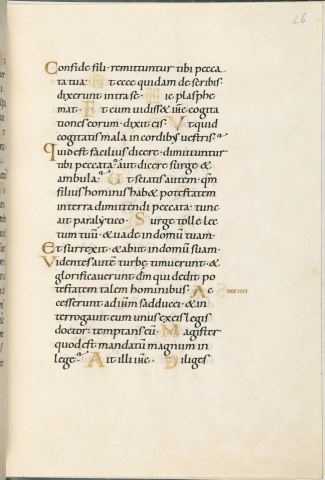 26
Confide fili · remittuntur tibi pecca
ta tua · Et ecce quidam de scribis
dixerunt intra se · Hic plasphe
mat · Et cum uidiss& ihc cogita
tiones eorum · dixit eis · Vt quid
cogitatis mala in cordibus uestris?
quid est facilius dicere · dimittuntur
tibi peccata? aut dicere surge &
ambula? Ut sciatis autem · qm
filius hominis hab& potestatem
in terra dimittendi peccata · tunc
ait paralytico · Surge tolle lec
tum tuū · & uade in domū tuam ·
Et surrexit · & abiit in domū suam ·
Videntes autē turbę timuerunt · &
glorificauerunt dm qui dedit po
testatem talem hominibus · Ac
cesserunt ad ihm sadducei · & in
terrogauit eum unus ex eis legis
doctor · temptans eū · Magister
quod est mandatū magnum in
lege? Ait illi ihc · Diliges